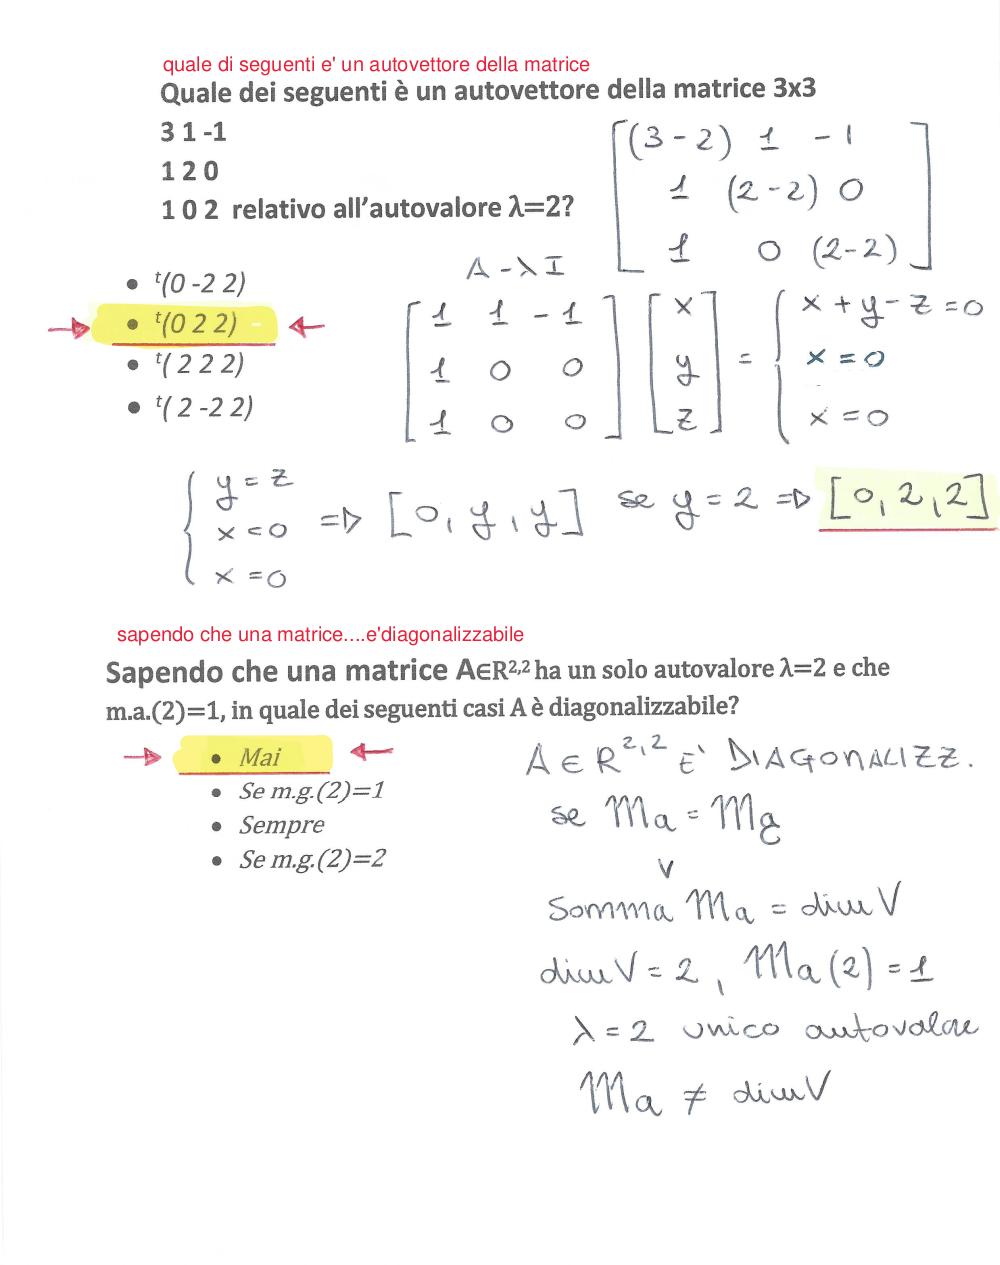 quale di seguenti e' un autovettore della matrice
Quale dei seguenti è un autovettore della matrice 3x3
3 1 -1
1 2 0
1 0 2 relativo all'autovalore λ=2?
[(3-2) 1 -1
1 (2-2) 0
1 0 (2-2)]
A-λI
• ᵗ(0 -2 2)
• ᵗ(0 2 2)
• ᵗ( 2 2 2)
• ᵗ( 2 -2 2)
[1 1 -1] [x] = { x + y - z = 0
1 0 0 y x = 0
1 0 0 z x = 0
{ y = z
x = 0 => [0, y, y] se y = 2 => [0, 2, 2]
x = 0
sapendo che una matrice....e'diagonalizzabile
Sapendo che una matrice A∈R²,² ha un solo autovalore λ=2 e che
m.a.(2)=1, in quale dei seguenti casi A è diagonalizzabile?
• Mai
• Se m.g.(2)=1
• Sempre
• Se m.g.(2)=2
A ∈ R²,² E' DIAGONALIZZ.
se Ma = Mg
v
Somma Ma = dim V
dim V = 2, Ma(2) = 1
λ = 2 unico autovalore
Ma ≠ dim V